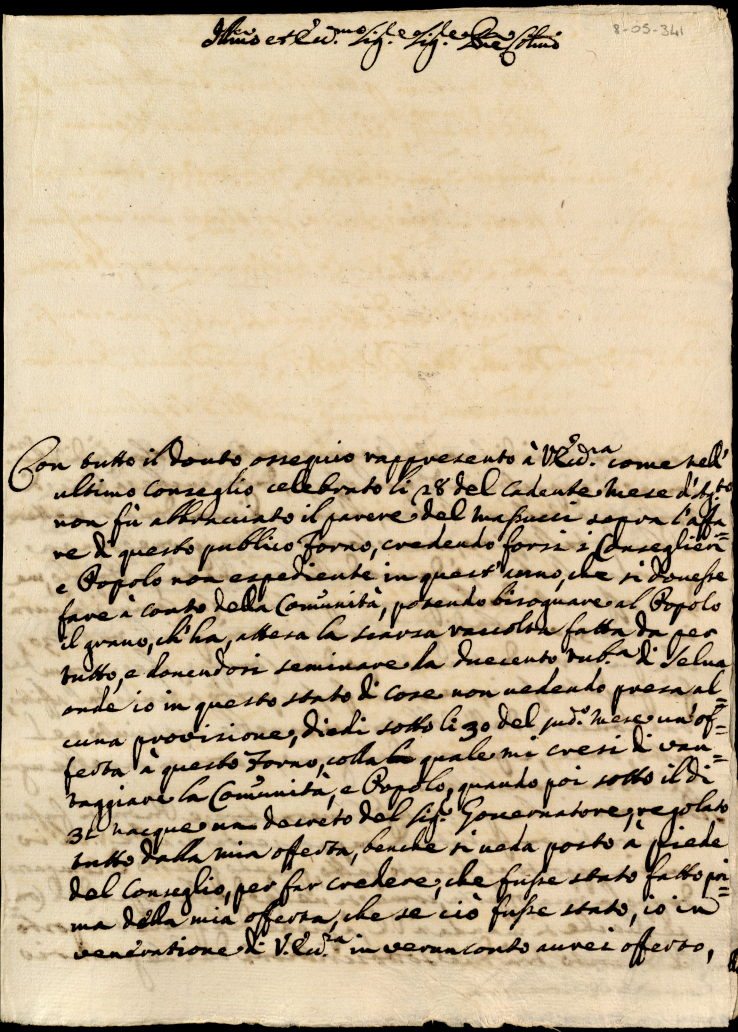 Illmo et Rdmo Sig.e Sig.e Pne Colmo
8-05-341
Con tutto il douto ossequio rappresento à V.Rdma come nell'
ultimo Conseglio celebrato li 28 del cadente mese d'
non fù abbracciato il parere del Massucci sopra l'affa=
re di questo publico Forno, credendo forsi i Conseglieri
e Popolo non espediente in quest'anno, che si douesse
fare à conto della Comunità, potendo bisognare al Popolo
il grano, ch'ha, attesa la scarsa raccolta fatta da per
tutto, e douendosi seminare da duecento rub.a di Selua
onde io in questo stato di cose non uedendo presa al=
cuna prouisione, diedi sotto li 30 del sud.o mese un'of=
ferta à questo Forno, colla quale mi cresi di uan=
taggiare la Comunità, e Popolo, quando poi sotto il di
31 nacque un decreto del Sig.r Gouernatore, regolato
tutto dalla mia offerta, benche si ueda posto à piede
del Conseglio, per far credere, che fusse stato fatto pri=
ma della mia offerta, che se ciò fusse stato, io in
ueneratione di V.Rd.ma in uerun conto aurei offerto,